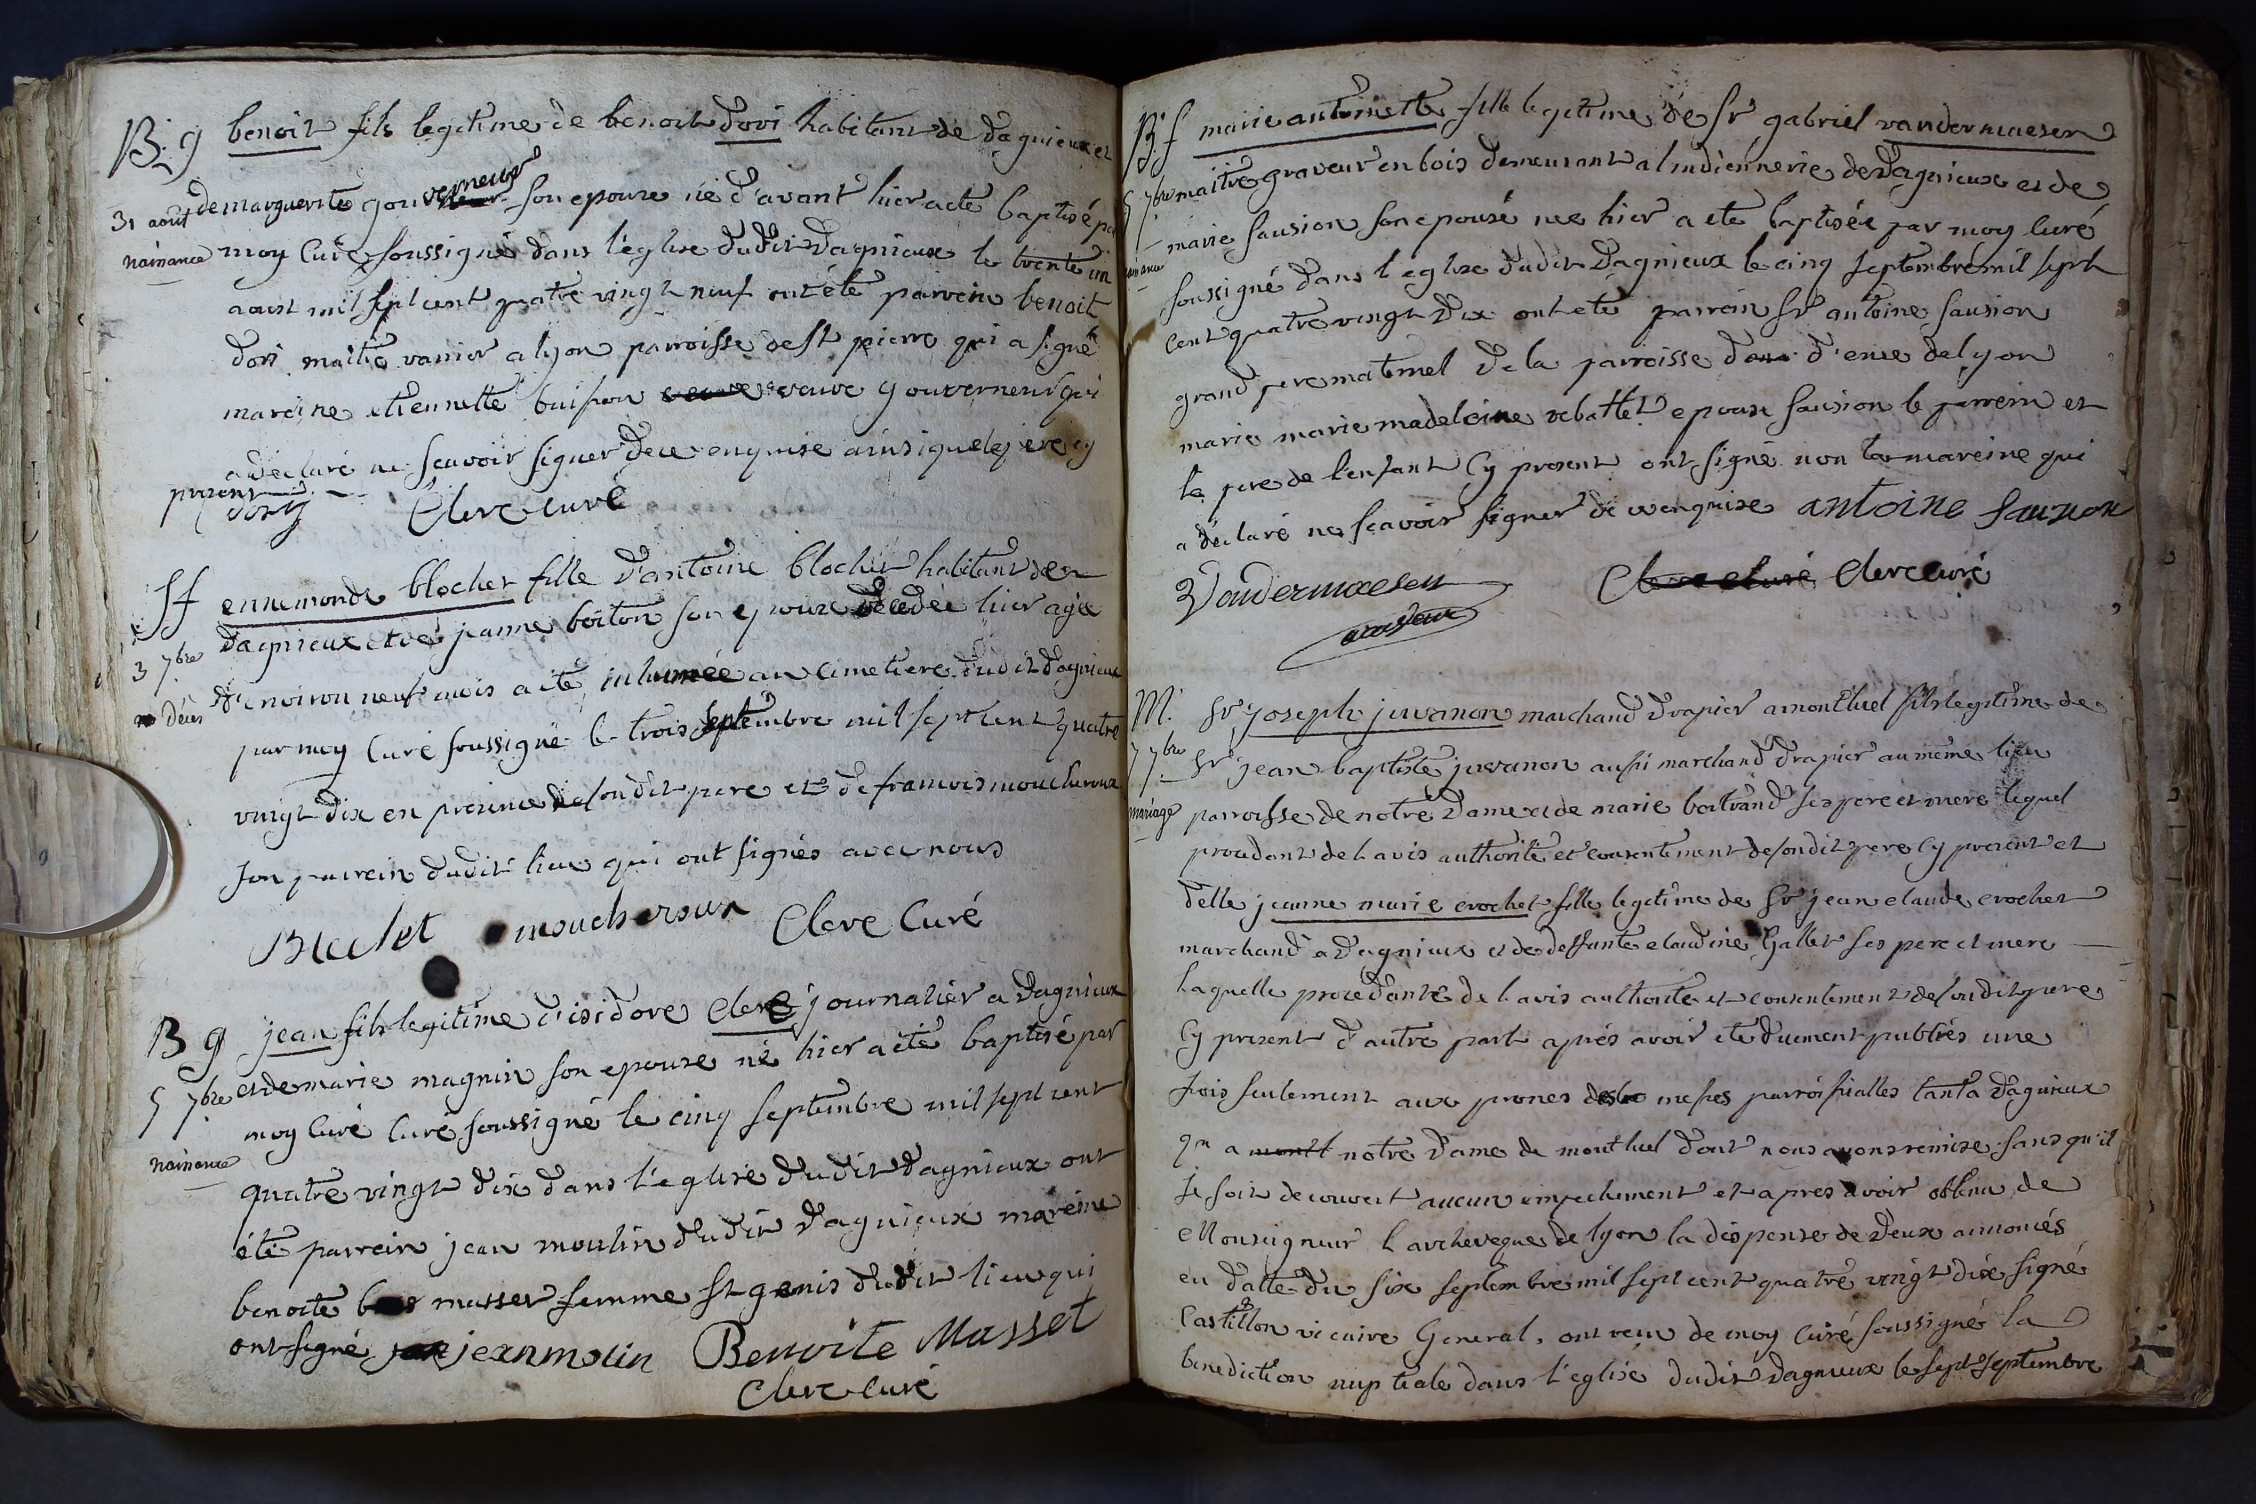 B. g benoit fils legitime de benoit dori habitant de dagnieux et
31 aout de marguerite gouverneur son epouse né d'avant hier a eté baptisé par
naissance moy Curé soussigné dans l'eglise dudit Dagnieux le trente un
aoust mil sept cent quatre vingt neuf ont été parrein benoit
dori maitre vanier a lyon parroisse de st pierre qui a signé
mareine etiennette buisson veuve gouverneur qui
a declaré ne scavoir signer de ce enquise ainsi que le pere cy
present
dory Clerc curé
S f ennemonde blochet fille d'antoine blochet habitant de
dagnieux et de jeanne boiton son epouse decedée hier agée
3 7bre d'environ neuf mois a eté inhumée au cimetiere dudit dagnieux
décès par moy Curé soussigné le trois septembre mil sept cent quatre
vingt dix en presence de son dit pere et de francois moucheroux
son parrein dudit lieu qui ont signés avec nous
Blochet moucheroux Clerc Curé
B g jean fils legitime d'isidore Clerc journalier a Dagnieux
5 7bre et de marie magnin son epouse né hier a eté baptisé par
moy Curé Curé soussigné le cinq septembre mil sept cent
naissance quatre vingt dix dans l'eglise dudit dagnieux ont
été parrein jean moulin dudit dagnieux mareine
benoite masset femme st genis dudit lieu qui
ont signé jean molin Benoite Masset
Clerc curé
B. f marie antoinette fille legitime de Sr gabriel vandermaesen
5 7bre maitre graveur en bois demeurant a l'indiennerie de Dagnieux et de
marie sausion son epouse née hier a eté baptisée par moy curé
naissance soussigné dans l'eglise dudit Dagnieux le cinq septembre mil sept
cent quatre vingt dix ont eté parrein Sr antoine sausion
grand pere maternel de la parroisse d'enee de lyon
marie marie madeleine rebattet epouse sausion le parrein et
le pere de l'enfant cy present ont signé non la mareine qui
a déclaré ne scavoir signer de ce enquise antoine sausion
Vandermaesen Clerc Curé Clerc curé
M. Sr joseph juvanon marchand drapier a montluel fils legitime de
7 7bre Sr jean baptiste juvanon aussi marchand drapier au meme lieu
mariage parroisse de notre Dame et de marie bertrand ses pere et mere lequel
procedant de l avis authorité et consentement de son dit pere cy present et
delle jeanne marie crochet fille legitime de Sr jean claude crochet
marchand a Dagnieux et de deffunte claudine Gallet ses pere et mere
laquelle procedante de l avis authorité et consentement de son dit pere
cy present d'autre part aprés avoir eté duement publiés une
fois seulement aux prones des messes parroissialles tant a dagnieux
qu a montl notre Dame de montluel dont nous avons remise sans qu'il
se soit decouvert aucun empechement et apres avoir obtenu de
Monseigneur l archeveque de lyon la dispense de deux annonces
en datte du six septembre mil sept cent quatre vingt dix signé
Castillon vicaire General, ont recu de moy Curé soussigné la
benediction nuptiale dans l'eglise dudit Dagnieux le sept septembre